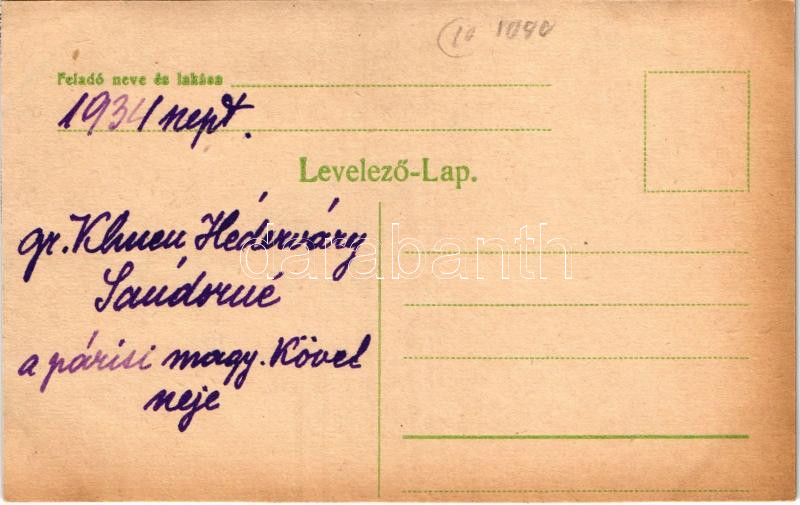 10 1090
Feladó neve és lakása
1934 sept.
Levelező-Lap.
gr. Khuen Héderváry
Sándorné
a párisi magy. Követ
neje
darabanth